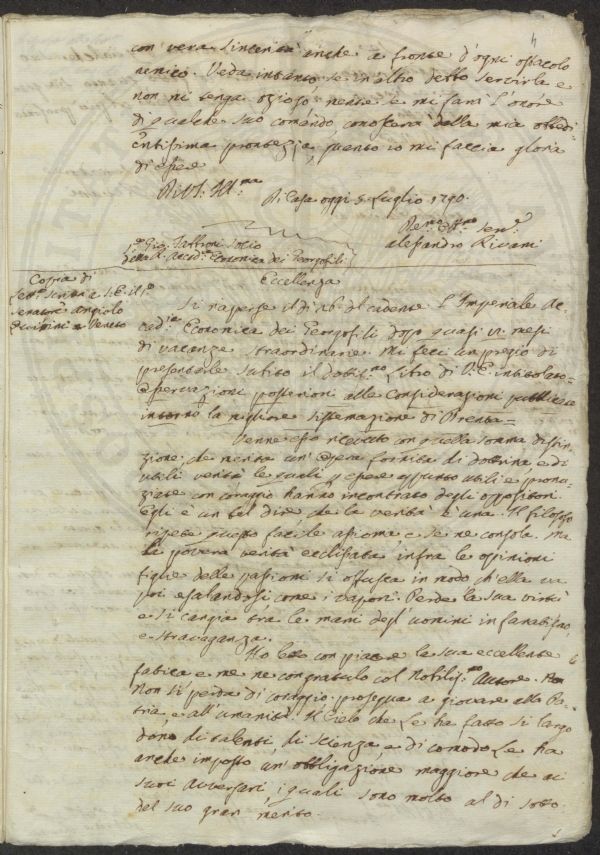 4
con vera sincerità anche a fronte d'ogni ostacolo
nemico. Veda intanto se in altro debbo servirla e
non mi tenga ozioso, mentre se mi farà l'onore
di qualche suo comando, conoscerà dalla mia obbedi-
entissima prontezza, quanto io mi faccia gloria
di essere
Di V.S. Ill:ma
Di Casa oggi 5 Luglio 1790.
Sen:e
Alessandro Rivani
Sig:e Gio: Socio
della R. Accad:a Economica dei Georgofili
Copia di
Lett:a scritta a S. E. il S:e
Senatore Angiolo
Querini a Veneto
Eccellenza
Si riaperse il dì 16 del cadente l'Imperiale Ac-
cad:ia Economica dei Georgofili dopo quasi VI mesi
di vacanze straordinarie. Mi feci un pregio di
presentarle subito il dottiss:mo Libro di V. E. intitolato=
Osservazioni posteriori alle Considerazioni pubblicate
intorno la migliore sistemazione di Brenta=
Venne esso ricevuto con quella somma distin-
zione, che merita un'opera fornita di dottrina, e di
utili verità le quali, essere appunto utili e pronun-
ziate con coraggio hanno incontrato degli oppositori.
Egli è un bel dire che la verità è una. Il filosofo
ripete questo facile assioma e se ne consola. Ma
la povera verità ecclissata infra le opinioni
figlie delle passioni si offusca in modo ch'ella va
poi esalandosi come i vapori. Perde la sua virtù
e si cangia tra le mani degl'uomini in fanatismo,
e stravaganza.
Ho letto con piacere la sua eccellente
fatica e me ne congratulo col Nobilis:mo Autore.
Non si perda di coraggio, prosegua a giovare alla Pa-
tria, e all'umanità. Il Cielo che Le ha fatto sì largo
dono di talenti, di scienza e di comodo Le ha
anche imposto un'obbligazione maggiore che ai
suoi Avversari, i quali sono molto al di sotto
del suo gran merito.